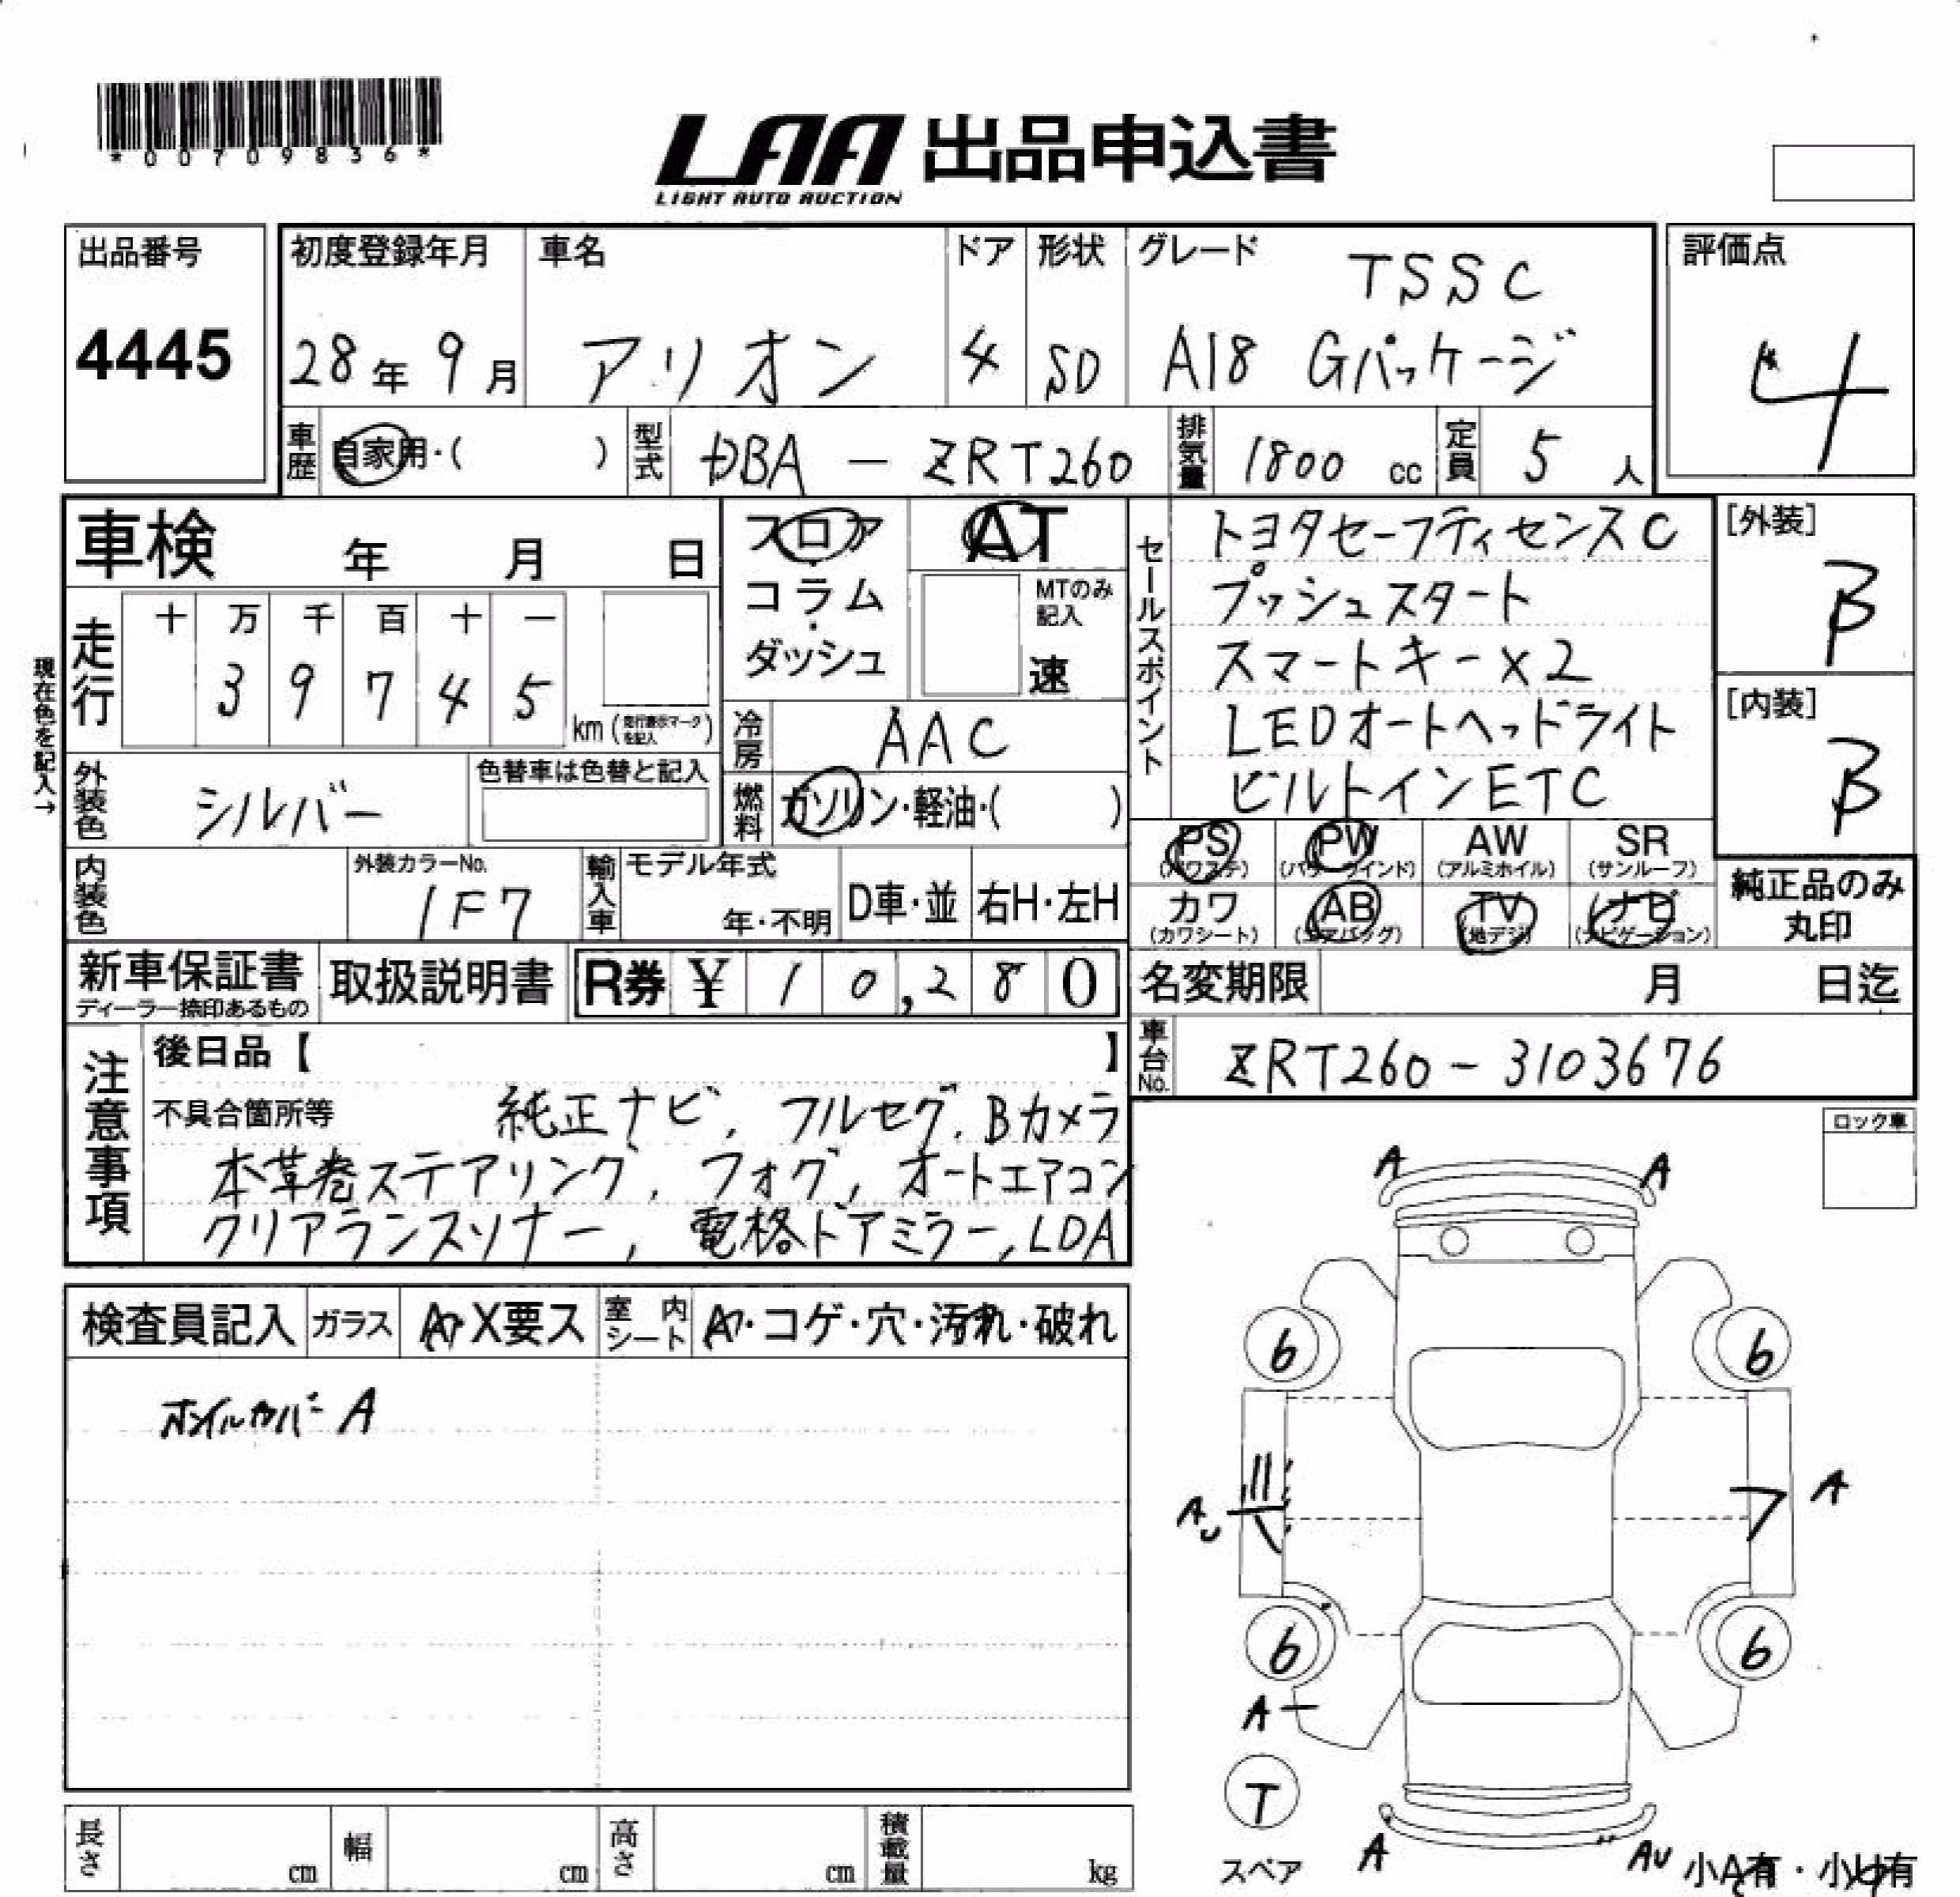 *00709836*
LAA 出品申込書
LIGHT AUTO AUCTION
出品番号
4445
初度登録年月
28年 9月
車名
アリオン
ドア
4
形状
SD
グレード
TSSC
A18 Gパッケージ
評価点
4
車歴
自家用・( )
型式
DBA - ZRT260
排気量
1800 cc
定員
5 人
車検 年 月 日
フロア
コラム
・
ダッシュ
AT
MTのみ
記入
速
セールスポイント
トヨタセーフティセンスC
プッシュスタート
スマートキーx2
LEDオートヘッドライト
ビルトインETC
[外装]
B
[内装]
B
現在色を記入→
走行
十 万 千 百 十 一
3 9 7 4 5
km (走行表示マークを記入)
冷房
AAC
外装色
シルバー
色替車は色替と記入
燃料
ガソリン・軽油・( )
PS
(パワステ)
PW
(パワーウインド)
AW
(アルミホイル)
SR
(サンルーフ)
カワ
(カワシート)
AB
(エアバッグ)
TV
(地デジ)
ナビ
(ナビゲーション)
純正品のみ
丸印
内装色
外装カラーNo.
1F7
輸入車
モデル年式
年・不明
D車・並
右H・左H
新車保証書
ディーラー捺印あるもの
取扱説明書
R券 ¥ 10,280
名変期限 月 日迄
車台No.
ZRT260-3103676
注意事項
後日品【 】
不具合箇所等 純正ナビ, フルセグ, Bカメラ
本革巻ステアリング, フォグ, オートエアコン
クリアランスソナー, 電格ドアミラー, LDA
ロック車
検査員記入
ガラス
A・X要ス
室内
シート
A・コゲ・穴・汚れ・破れ
ホイルカバー A
A A
6 6
AU A
6 6
A
T
スペア
A AU
小A有・小U有
長さ cm
幅 cm
高さ cm
積載量 kg